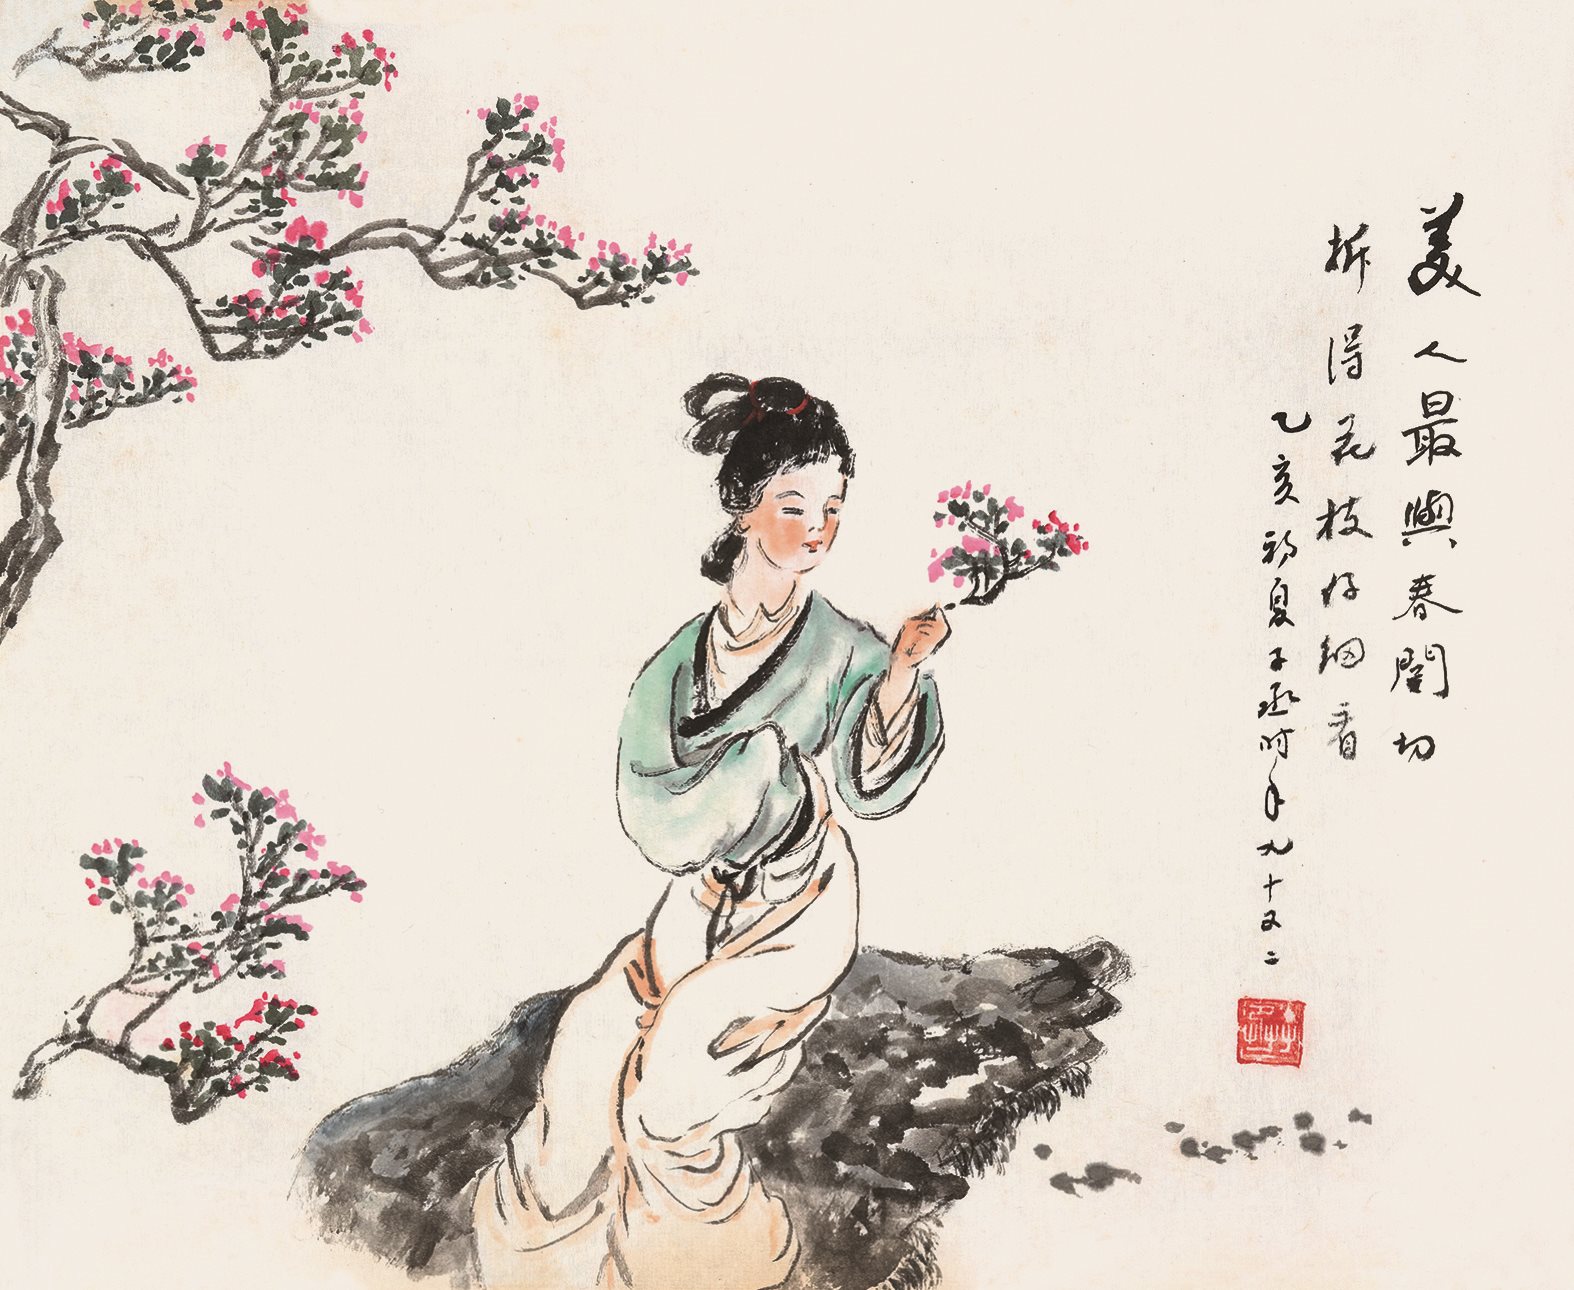 美人最與春關切
折得花枝仔細看
乙亥初夏子丞时年九十又二